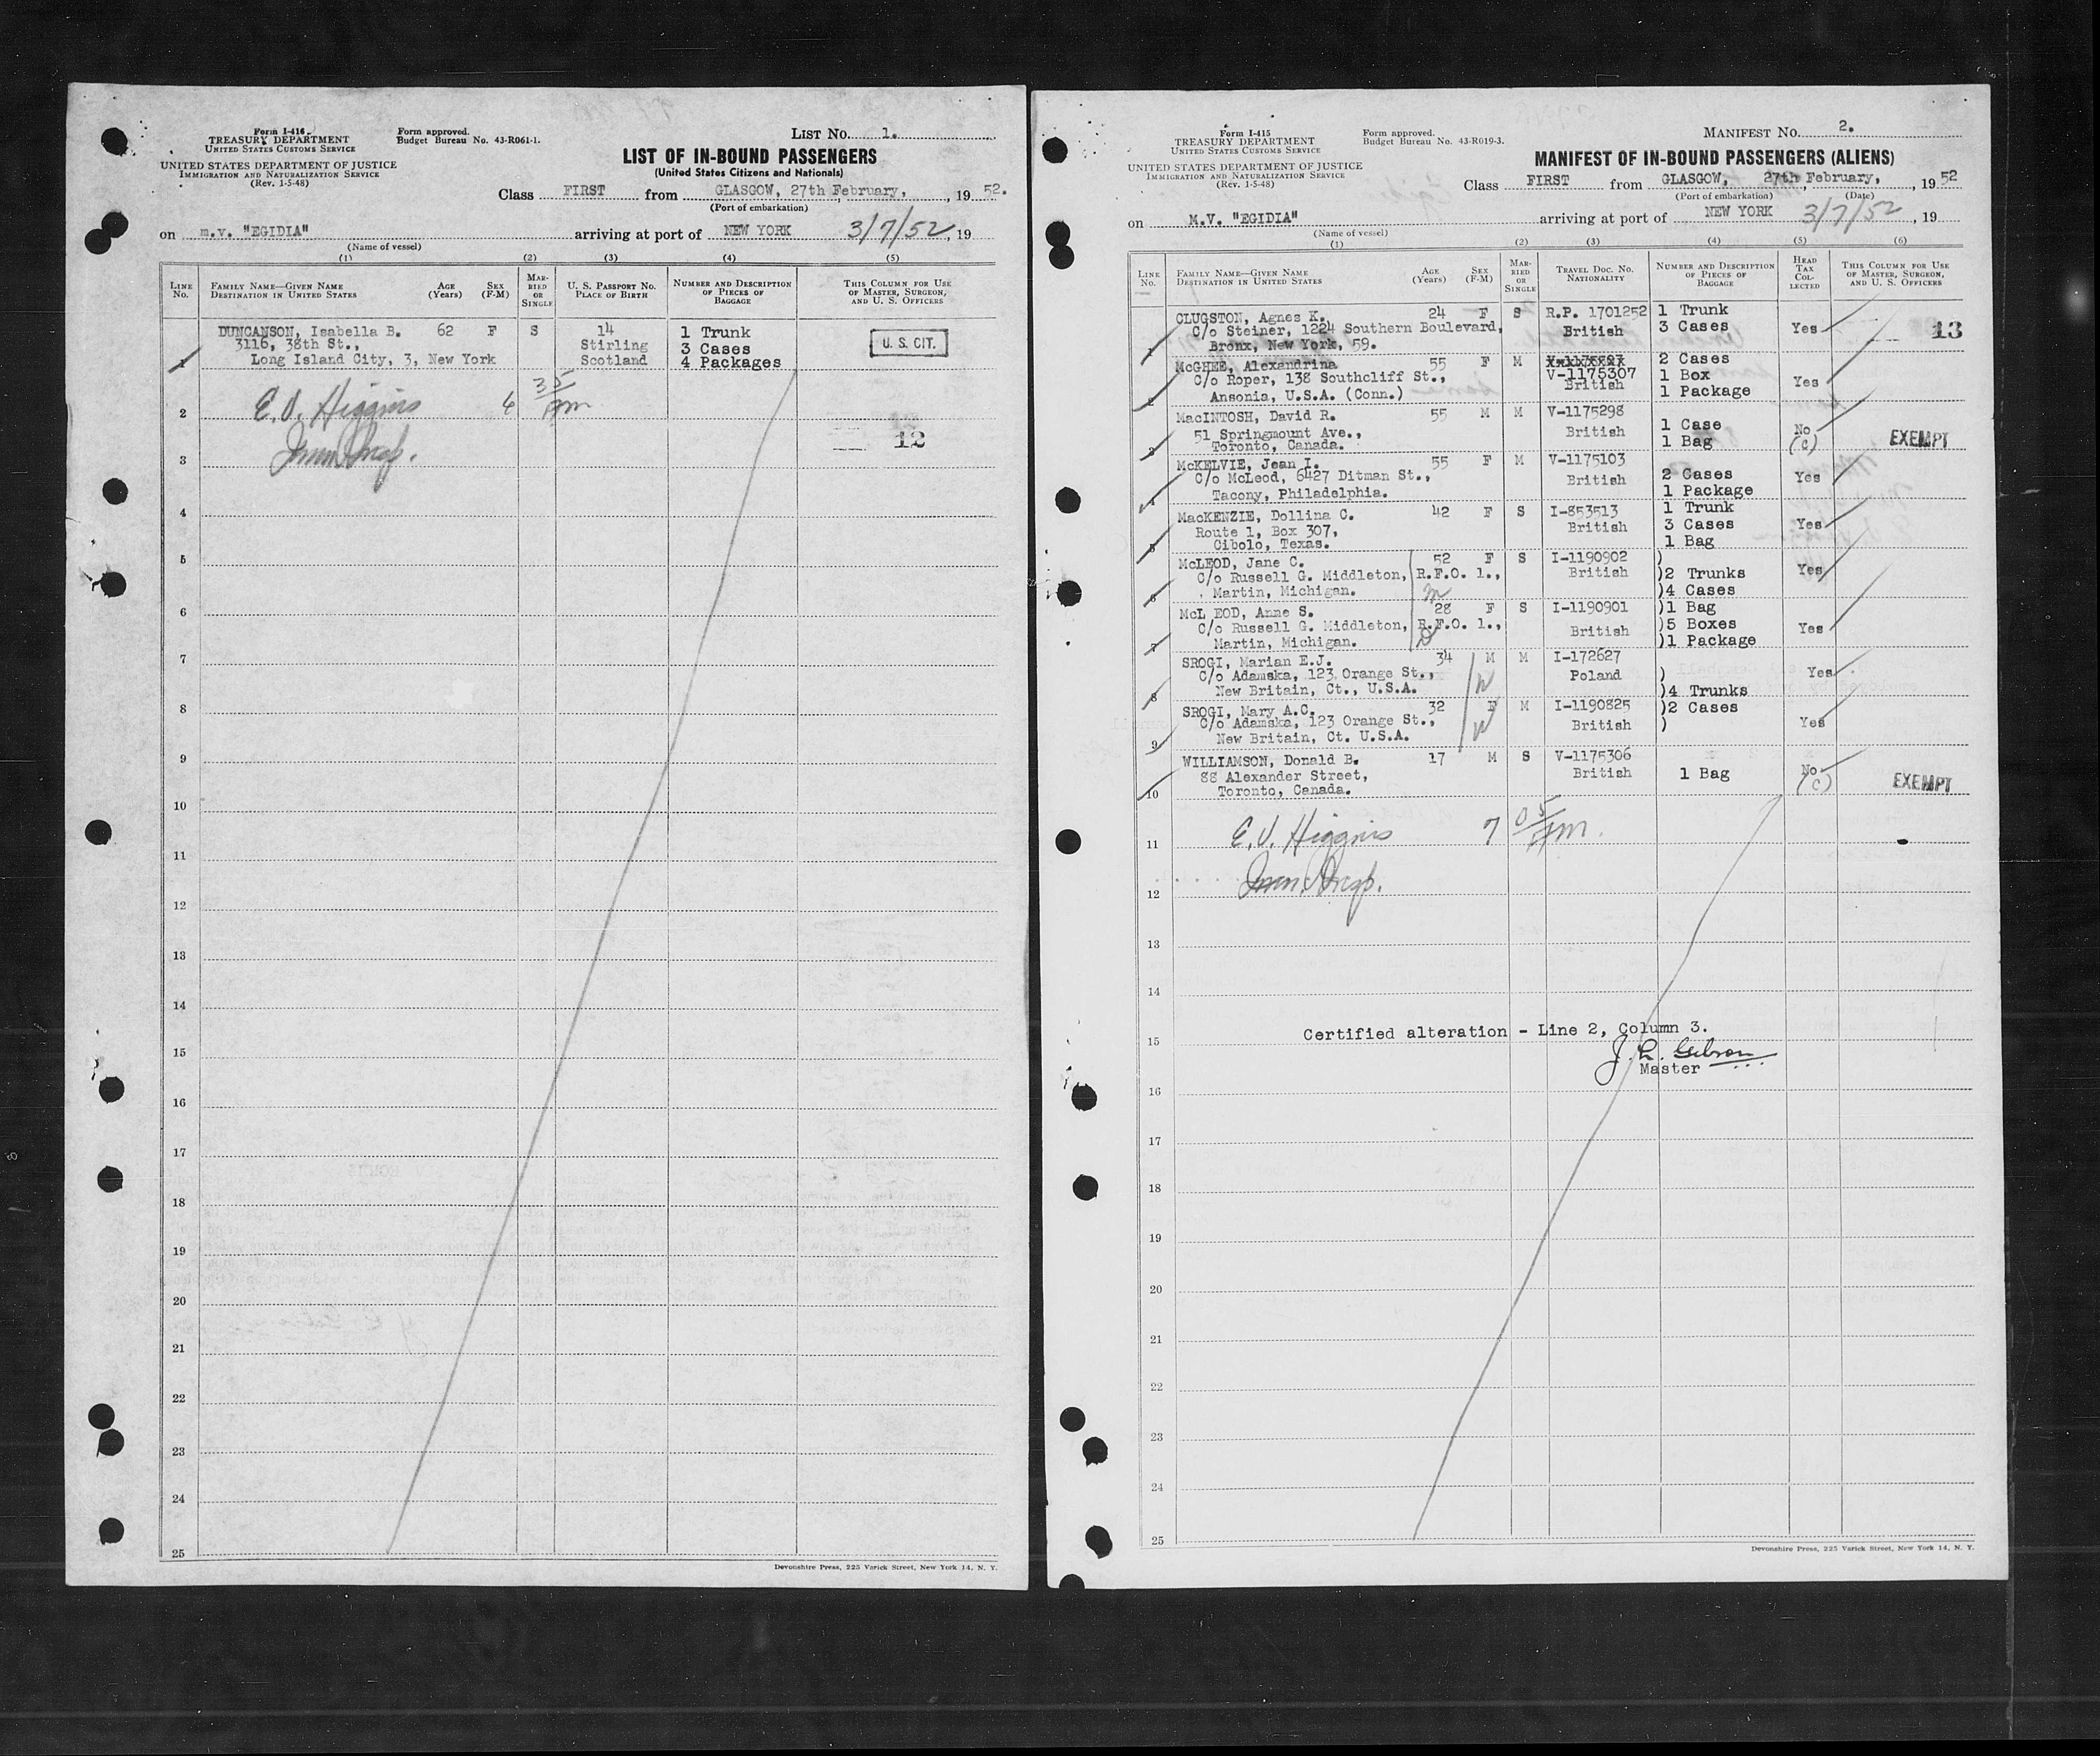 Form I-416
TREASURY DEPARTMENT
UNITED STATES CUSTOMS SERVICE
UNITED STATES DEPARTMENT OF JUSTICE
IMMIGRATION AND NATURALIZATION SERVICE
(Rev. 1-5-48)
Form approved.
Budget Bureau No. 43-R061-1.
LIST No. 1.
LIST OF IN-BOUND PASSENGERS
(United States Citizens and Nationals)
Class FIRST from GLASGOW, 27th February, 1952.
(Port of embarkation)
on m.v. "EGIDIA" arriving at port of NEW YORK 3/7/52, 19
(Name of vessel)
(1) (2) (3) (4) (5)
LINE No. FAMILY NAME—GIVEN NAME DESTINATION IN UNITED STATES AGE (Years) SEX (F-M) MARRIED OR SINGLE U. S. PASSPORT NO. PLACE OF BIRTH NUMBER AND DESCRIPTION OF PIECES OF BAGGAGE THIS COLUMN FOR USE OF MASTER, SURGEON, AND U. S. OFFICERS
DUNCANSON, Isabella B. 62 F S 14 1 Trunk U. S. CIT.
3116, 38th St., Stirling 3 Cases
1 Long Island City, 3, New York Scotland 4 Packages
2 E. V. Higgins 6 35/pm
12
3 Imm Insp.
4
5
6
7
8
9
10
11
12
13
14
15
16
17
18
19
20
21
22
23
24
25
Devonshire Press, 225 Varick Street, New York 14, N. Y.
Form I-415
TREASURY DEPARTMENT
UNITED STATES CUSTOMS SERVICE
UNITED STATES DEPARTMENT OF JUSTICE
IMMIGRATION AND NATURALIZATION SERVICE
(Rev. 1-5-48)
Form approved.
Budget Bureau No. 43-R019-3.
MANIFEST No. 2.
MANIFEST OF IN-BOUND PASSENGERS (ALIENS)
Class FIRST from GLASGOW, 27th February, 1952
(Port of embarkation) (Date)
on M.V. "EGIDIA" arriving at port of NEW YORK 3/7/52, 19
(Name of vessel)
(1) (2) (3) (4) (5) (6)
LINE No. FAMILY NAME—GIVEN NAME DESTINATION IN UNITED STATES AGE (Years) SEX (F-M) MARRIED OR SINGLE TRAVEL DOC. NO. NATIONALITY NUMBER AND DESCRIPTION OF PIECES OF BAGGAGE HEAD TAX COLLECTED THIS COLUMN FOR USE OF MASTER, SURGEON, AND U. S. OFFICERS
CLUGSTON, Agnes K. 24 F S R.P. 1701252 1 Trunk
C/o Steiner, 1224 Southern Boulevard, British 3 Cases Yes 13
1 Bronx, New York, 59.
McGHEE, Alexandrina 55 F M 2 Cases
C/o Roper, 138 Southcliff St., V-1175307 British 1 Box Yes
2 Ansonia, U.S.A. (Conn.) 1 Package
MacINTOSH, David R. 55 M M V-1175298
51 Springmount Ave., British 1 Case No EXEMPT
3 Toronto, Canada. 1 Bag (C)
McKELVIE, Jean I. 55 F M V-1175103
C/o McLeod, 6427 Ditman St., British 2 Cases Yes
4 Tacony, Philadelphia. 1 Package
MacKENZIE, Dollina C. 42 F S I-853513 1 Trunk
Route 1, Box 307, British 3 Cases Yes
5 Cibolo, Texas. 1 Bag
McLEOD, Jane C. 52 F S I-1190902 )
C/o Russell G. Middleton, R.F.O. 1., British )2 Trunks Yes
6 Martin, Michigan. )4 Cases
McL EOD, Anne S. 28 F S I-1190901 )1 Bag
C/o Russell G. Middleton, R.F.O. 1., British )5 Boxes Yes
7 Martin, Michigan. )1 Package
SROGI, Marian E.J. 34 M M I-172627
C/o Adamska, 123 Orange St., Poland ) Yes
8 New Britain, Ct., U.S.A. )4 Trunks
SROGI, Mary A.C. 32 F M I-1190825 )2 Cases
C/o Adamska, 123 Orange St., British ) Yes
9 New Britain, Ct. U.S.A.
WILLIAMSON, Donald B. 17 M S V-1175306
88 Alexander Street, British 1 Bag No EXEMPT
10 Toronto, Canada. (C)
11 E. V. Higgins 7 05/pm.
12 Imm. Insp.
13
14
Certified alteration - Line 2, Column 3.
15
J. R. Gibson
Master
16
17
18
19
20
21
22
23
24
25
Devonshire Press, 225 Varick Street, New York 14, N. Y.